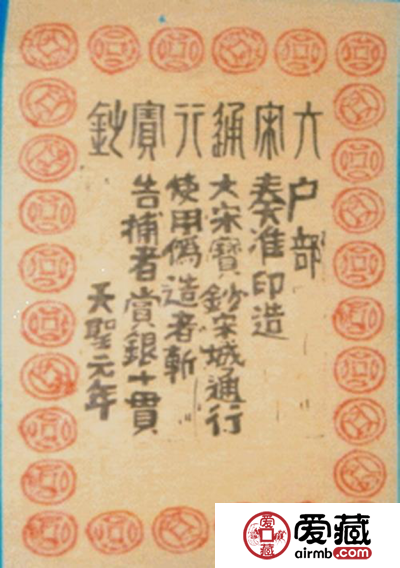 大宋通行寶鈔
户部
奏准印造
大宋寶鈔宋城通行
使用偽造者斬
告捕者賞銀十貫
天聖元年
爱藏
airmb.com